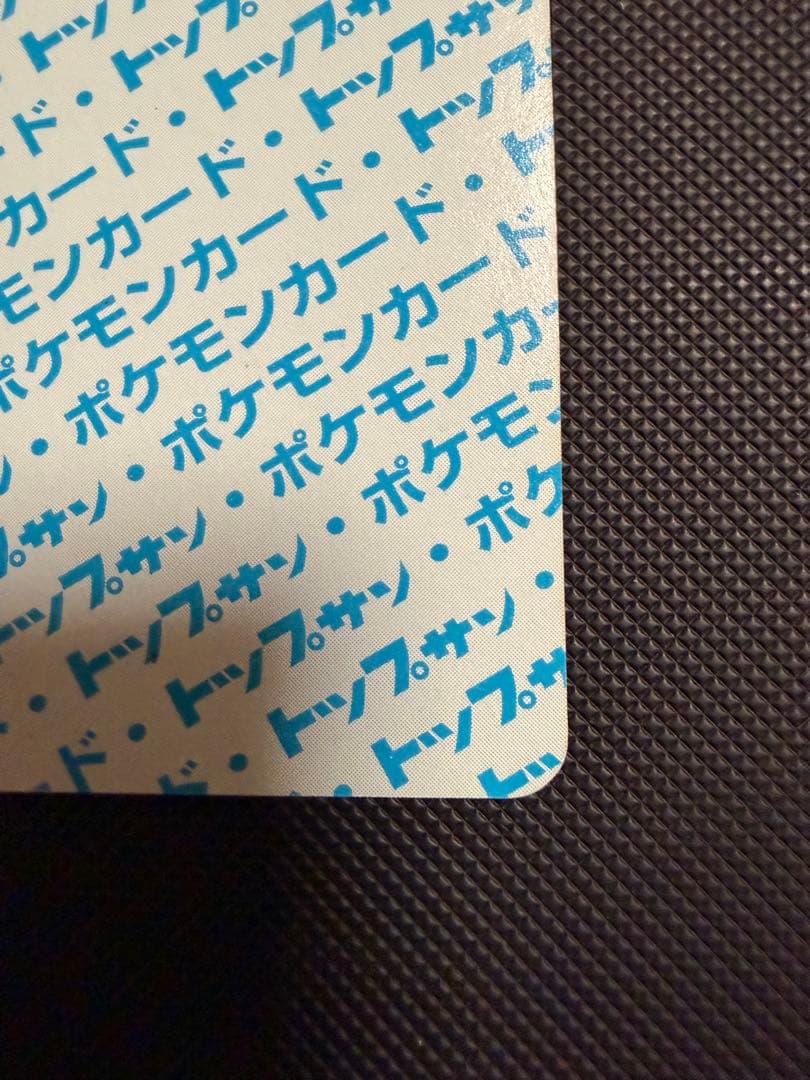 トッ
ード・トップ
カード・トップサ
モンカード・トップサン
ポケモンカード・トップ
ン・ポケモンカード・ト
プサン・ポケモンカード
トップサン・ポケモンカー
・トップサン・ポケモン
ド・トップサン・ポケ
ド・トップサン・
・トップサ
トッ